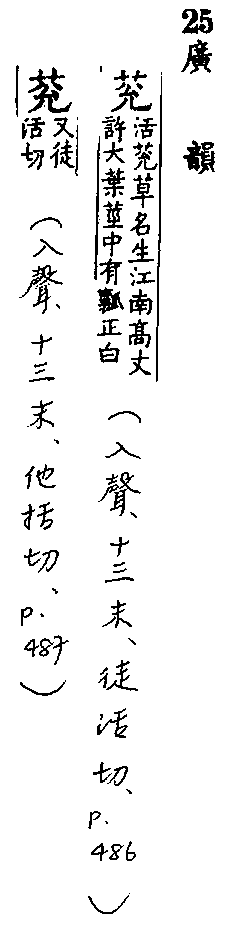 25 廣韻
莌 活莌草名生江南高丈許大葉莖中有瓤正白 (入聲、十三末、徒活切、p.486)
莌 又徒活切 (入聲、十三末、他括切、p.487)